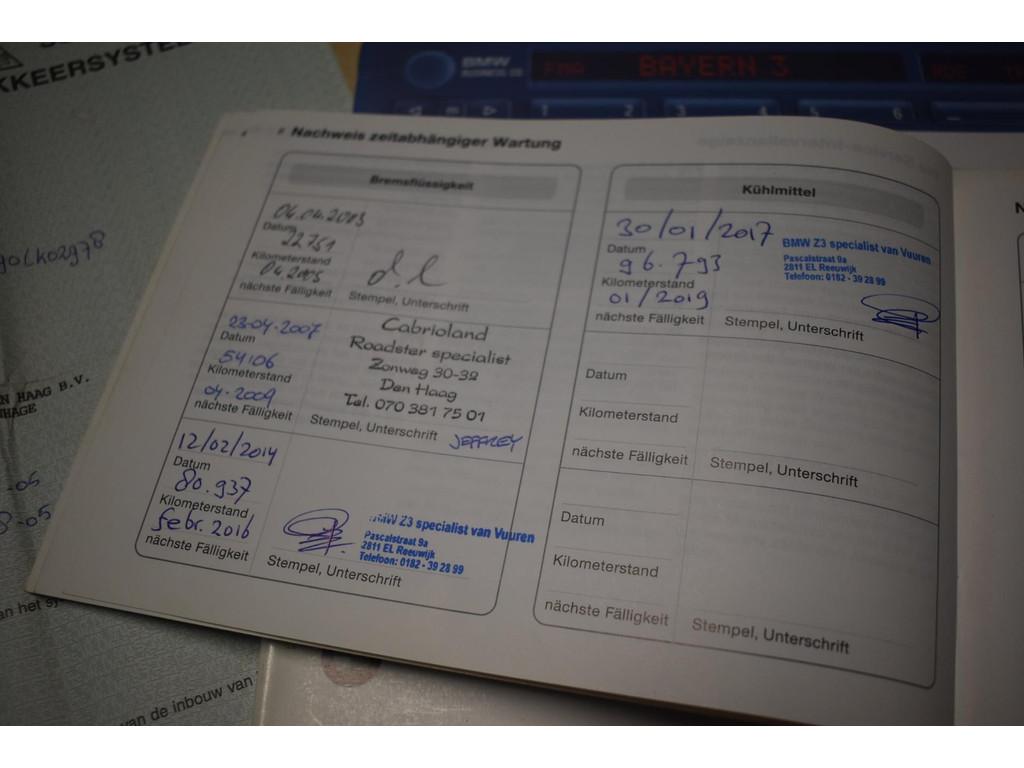 KKEERSYSTE
BMW
BUSINESS CD
BAYERN 3
1 2 3 4 5 6
4
Nachweis zeitabhängiger Wartung
Bremsflüssigkeit
04.04.2003
Datum
22751
Kilometerstand
04 2005
nächste Fälligkeit
Stempel, Unterschrift
23-04-2007
Datum
54106
Kilometerstand
04-2009
nächste Fälligkeit
Cabrioland
Roadster specialist
Zonweg 30-32
Den Haag
Tel. 070 381 75 01
Stempel, Unterschrift
JEFFREY
12/02/2014
Datum
80.937
Kilometerstand
febr. 2016
nächste Fälligkeit
BMW Z3 specialist van Vuuren
Pascalstraat 9a
2811 EL Reeuwijk
Telefoon: 0182 - 39 28 99
Stempel, Unterschrift
Kühlmittel
30/01/2017
Datum
96.793
Kilometerstand
01/2019
nächste Fälligkeit
BMW Z3 specialist van Vuuren
Pascalstraat 9a
2811 EL Reeuwijk
Telefoon: 0182 - 39 28 99
Stempel, Unterschrift
Datum
Kilometerstand
nächste Fälligkeit
Stempel, Unterschrift
Datum
Kilometerstand
nächste Fälligkeit
Stempel, Unterschrift
N HAAG B.V.
HAGE
-05
8-05
an het sy
van de inbouw van
N